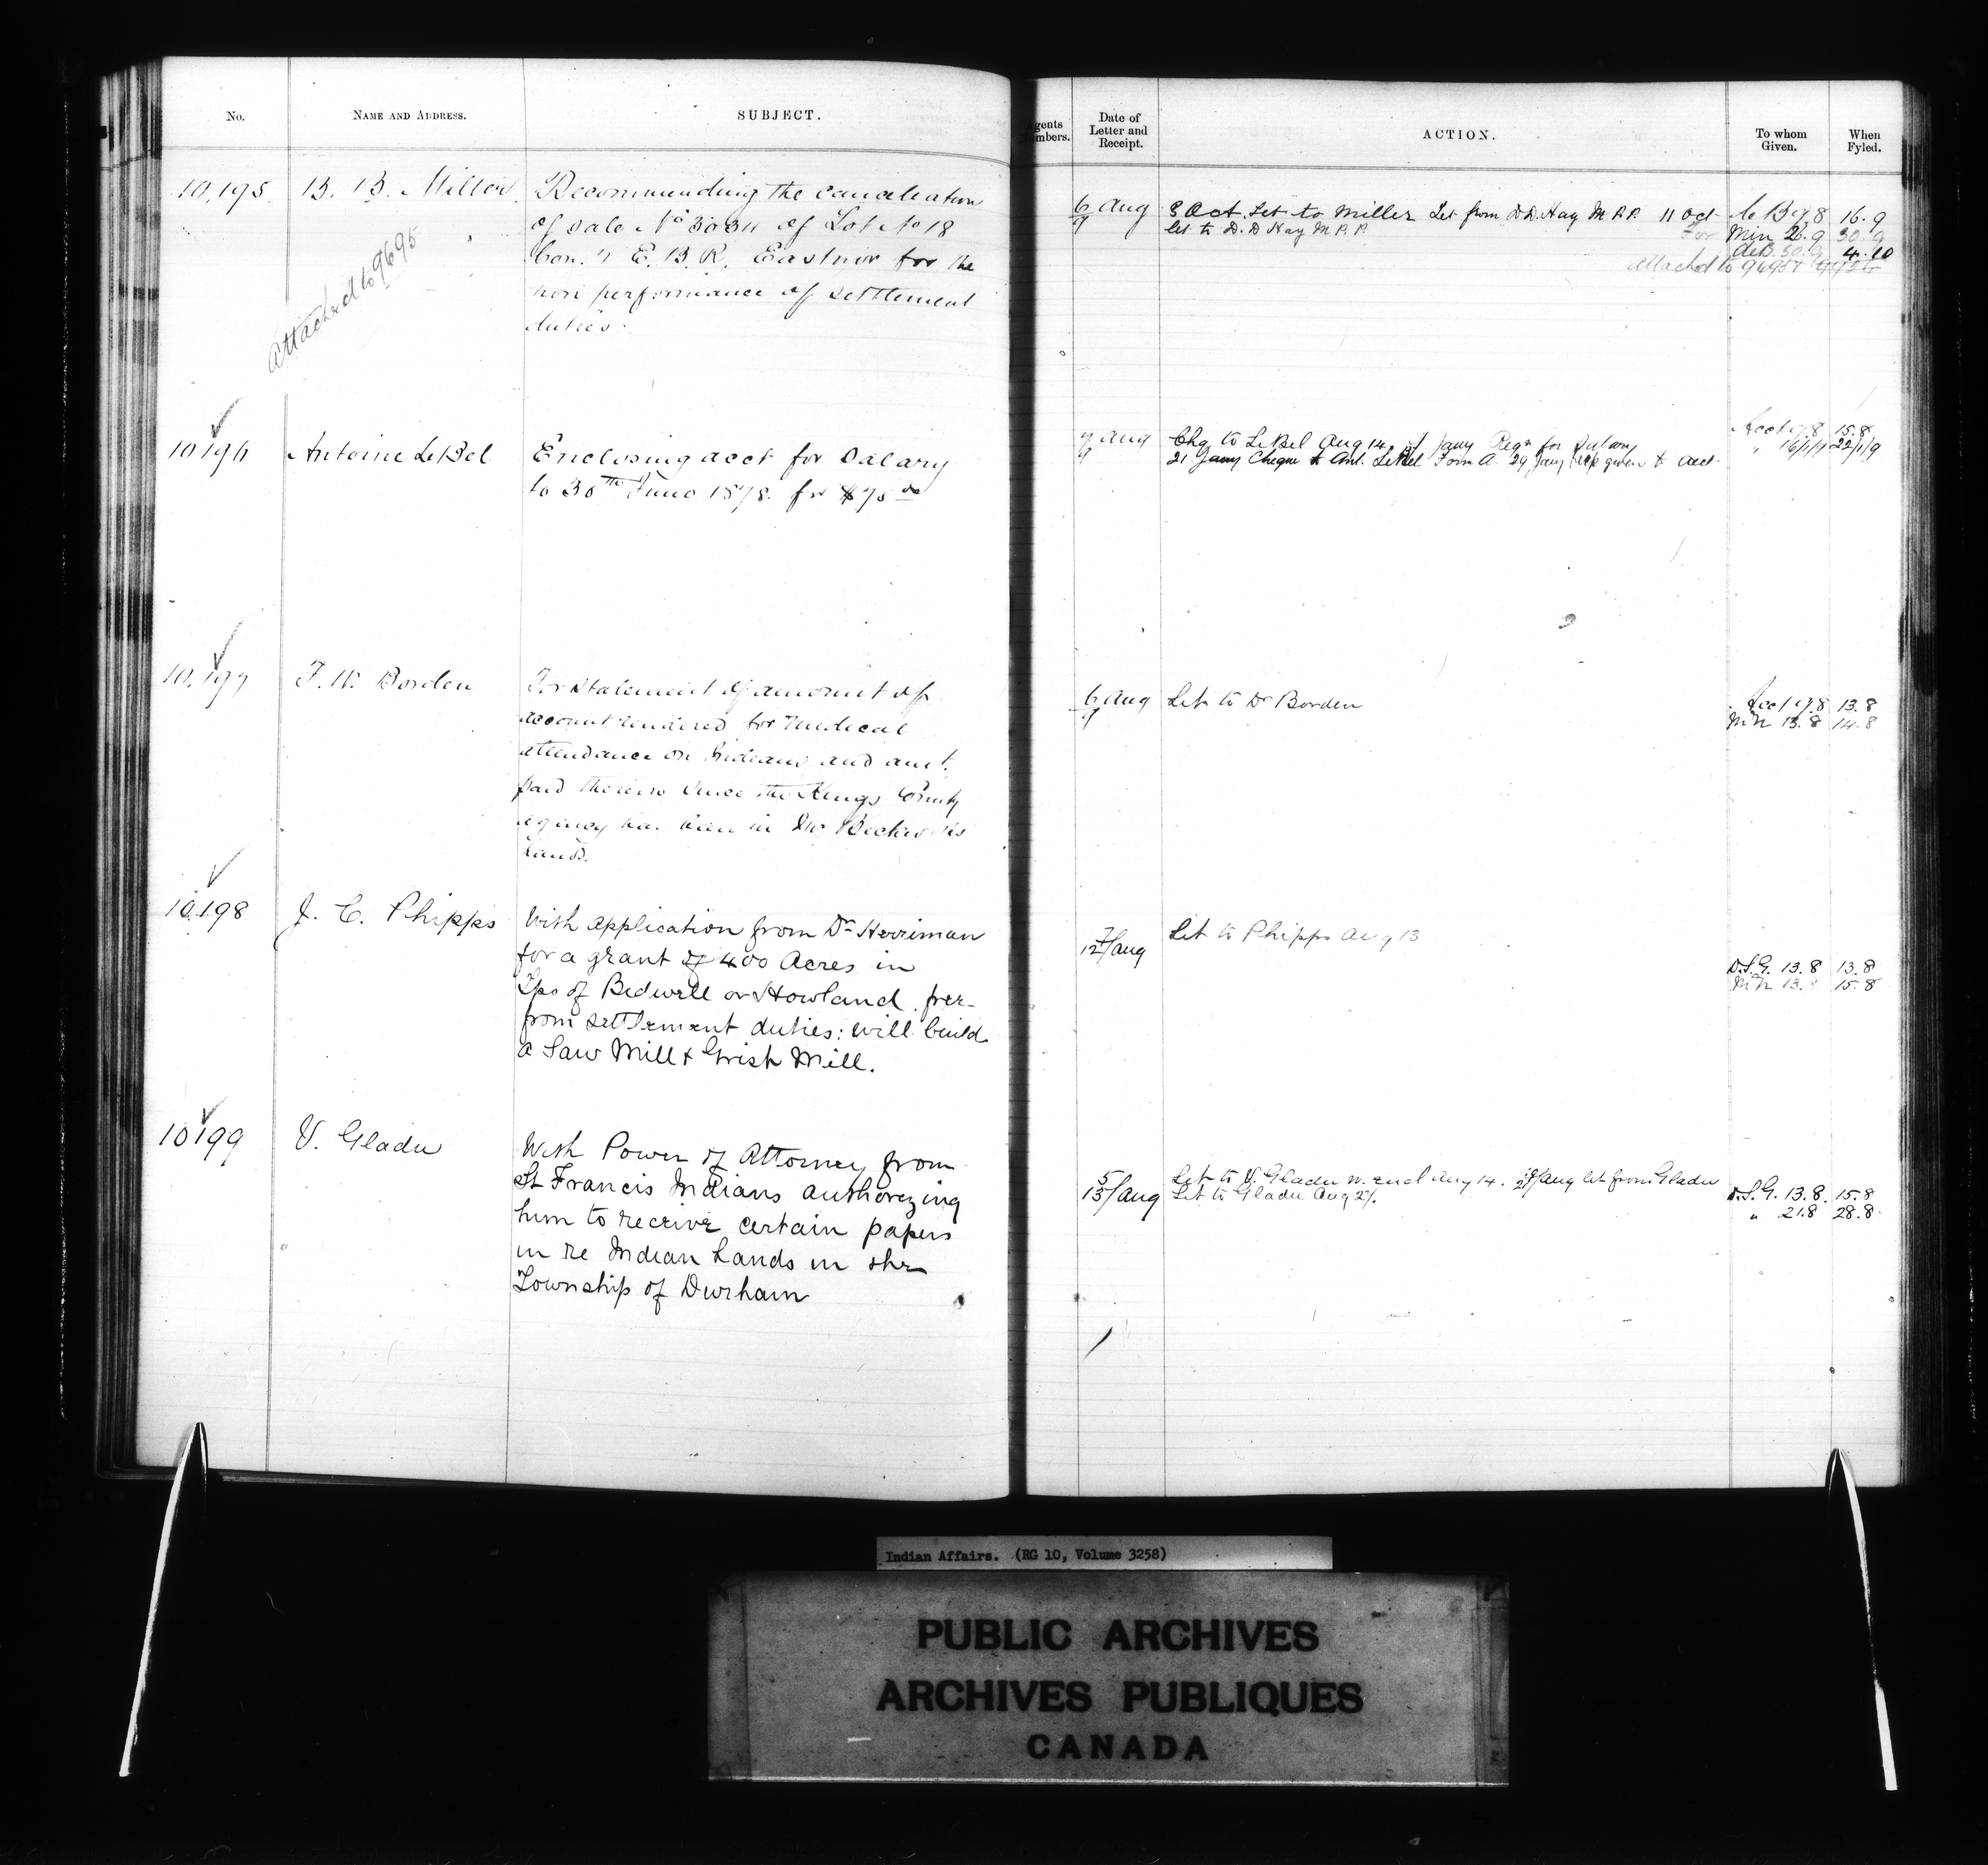 No. NAME AND ADDRESS. SUBJECT.
10,195 B. B. Miller Recommending the cancelation
of sale No 3034 of Lot No 18
Con. 4 E. B. R. Eastnor for the
non performance of settlement
duties.
Attached to 9695
10196 Antoine LeBel Enclosing acct for Salary
to 30th June 1878. for $75 00
10,197 F. W. Borden For statement of amount of
account rendered for medical
attendance on Indians and amt.
paid thereon since the Kings County
agency has been in Mr Beckwith's
hands.
10198 J. C. Phipps With application from Dr Herriman
for a grant of 400 Acres in
Tps of Bidwell or Howland, free
from settlement duties: will build
a Saw Mill & Grist Mill.
10199 V. Gladu With Power of Attorney from
St Francis Indians authorizing
him to receive certain papers
in re Indian Lands in the
Township of Durham
Agents Numbers. Date of Letter and Receipt. ACTION. To whom Given. When Fyled.
6/9 Aug 3 Oct Let to Miller Let from D.D. Hay M.P.P. 11 Oct C B 9.8 16.9
Let to D. D Hay M.P.P. Min 26.9 30.9
30.9 4.10
Attached to 9695
7/9 Aug Chq to LeBel Aug 14. Jany Reqn for Salary Acct 9.8 15.8
21 Jany Cheque to Ant. LeBel Form A. 29 Jany given to acct. " 16/1/9 22/1/9
6/9 Aug Let to Dr Borden Acct 9.8 13.8
Min 13.8 14.8
7/12 Aug Let to Phipps Aug 13
D.S.G. 13.8 13.8
Min 13.8 15.8
5/13 Aug Let to V. Gladu w. encl Aug 14. Aug let from Gladu
Let to Gladu Aug 27. D.S.G. 13.8. 15.8
" 21.8 28.8
Indian Affairs. (RG 10, Volume 3258)
PUBLIC ARCHIVES
ARCHIVES PUBLIQUES
CANADA